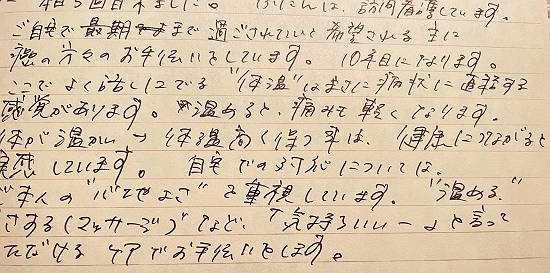 本日3回目来ました。ふだんは、訪問看護しています。
ご自宅で最期まで過ごされていと希望される主に
癌の方々のお手伝いをしています。10年目になります。
ここでよく話しにでる"体温"はまさに病状に直結する
感覚があります。温めると、痛みも軽くなります。
体が温かい→体温高く保つ事は、健康につながると
実感しています。自宅での対応については、
ご本人の"心地よさ"を重視しています。"温める"
さする(マッサージ)など、「気持ちいい〜」と言って
ただける ケアでお手伝いをします。